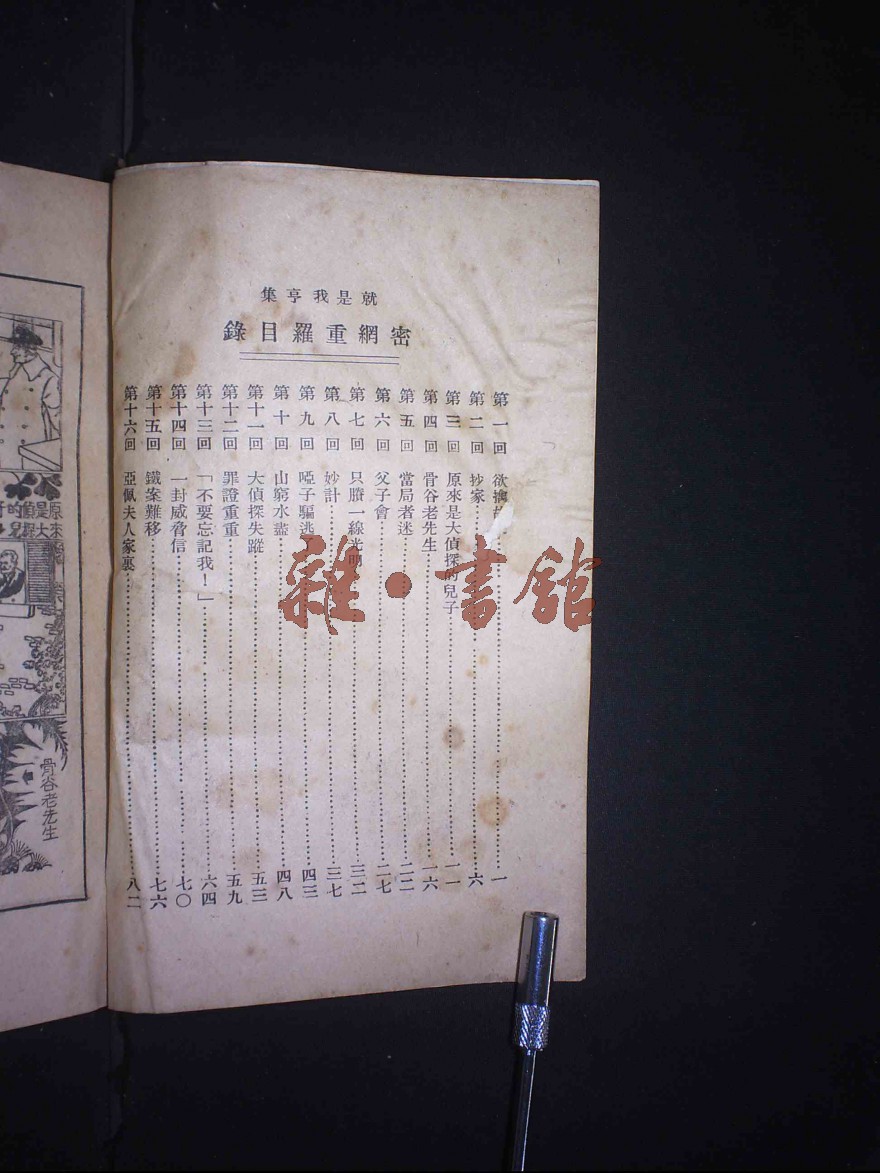 就是我亨集
密網重羅目錄
第一回 欲擒……一
第二回 抄家……六
第三回 原來是大偵探的兒子……一一
第四回 骨谷老先生……一六
第五回 當局者迷……二二
第六回 父子會……二七
第七回 只賸一線光明……三二
第八回 妙計……三七
第九回 啞子騙逃……四三
第十回 山窮水盡……四八
第十一回 大偵探失蹤……五三
第十二回 罪證重重……五九
第十三回 「不要忘記我！」……六四
第十四回 一封威脅信……七〇
第十五回 鐵案難移……七六
第十六回 亞佩夫人家裏……八二
雜·書館
骨谷老先生